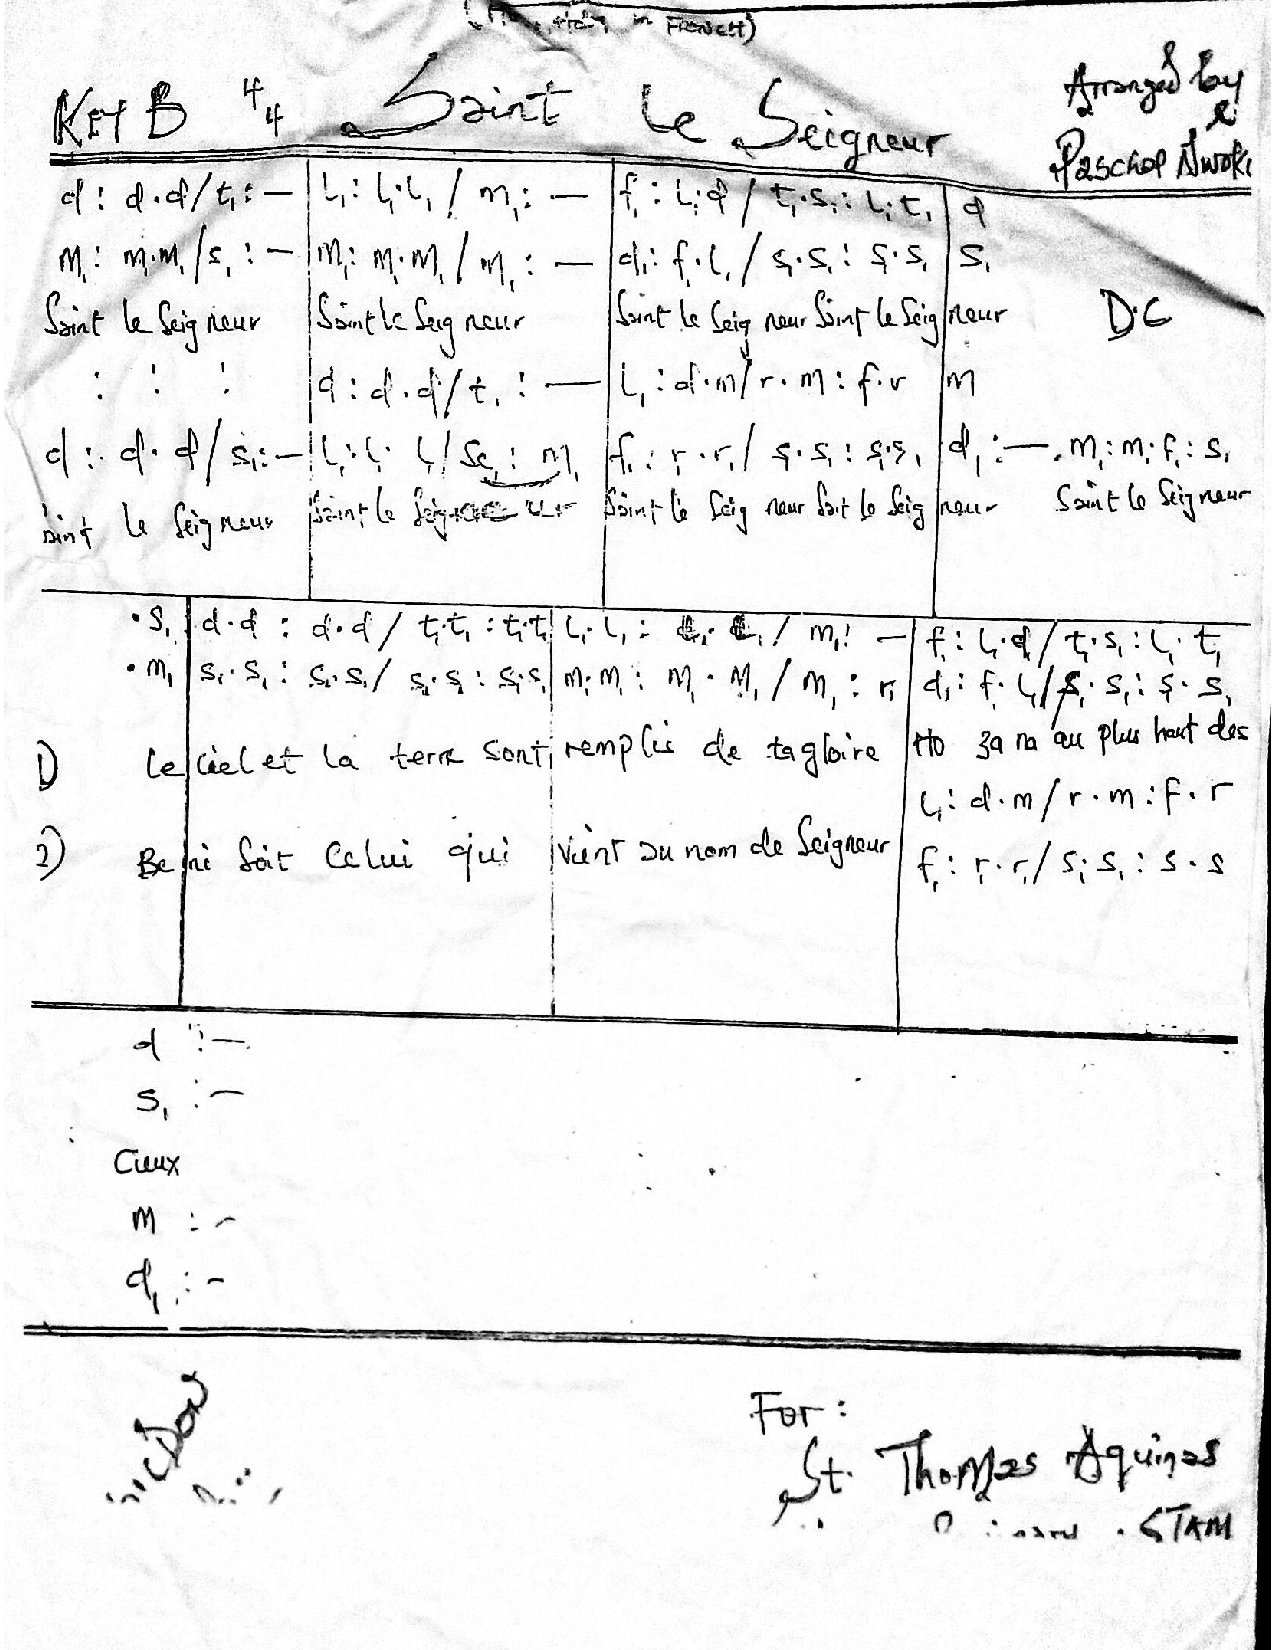 in French)
Key B 4/4 Saint Le Seigneur Arranged by
Paschal Nwoki
d : d.d / t₁ : — | l₁ : l₁.l₁ / m₁ : — | f₁ : l₁.d / t₁.s₁ : l₁.t₁ | d
m₁ : m₁.m₁ / s₁ : — | m₁ : m₁.m₁ / m₁ : — | d₁ : f₁.l₁ / s₁.s₁ : s₁.s₁ | s₁
Saint le Seig neur | Saint le Seig neur | Saint le Seig neur Saint le Seig | neur D.C
: : : | d : d.d / t₁ : — | l₁ : d.m / r.m : f.r | m
d : d.d / s₁ : — | l₁ : l₁.l₁ / se₁ : m₁ | f₁ : r₁.r₁ / s₁.s₁ : s₁.s₁ | d₁ : — . m₁ : m₁.f₁ : s₁
aint le Seig neur | Saint le Seig neur | Saint le Seig neur Sait le Seig | neur Saint le Seigneur
.s₁ | d.d : d.d / t₁.t₁ : t₁.t₁ | l₁.l₁ : l₁.l₁ / m₁ : — | f₁ : l₁.d / t₁.s₁ : l₁.t₁
.m₁ | s₁.s₁ : s₁.s₁ / s₁.s₁ : s₁.s₁ | m₁.m₁ : m₁.m₁ / m₁ : r₁ | d₁ : f₁.l₁ / s₁.s₁ : s₁.s₁
1) Le | ciel et la terre sont | remplis de ta gloire | Ho za na au plus haut des
l₁ : d.m / r.m : f.r
2) Be | ni soit Celui qui | vient au nom de Seigneur
f₁ : r₁.r₁ / s₁.s₁ : s.s
d : —
s₁ : —
Cieux
m : —
d₁ : —
For :
St. Thomas Aquinas
STAM